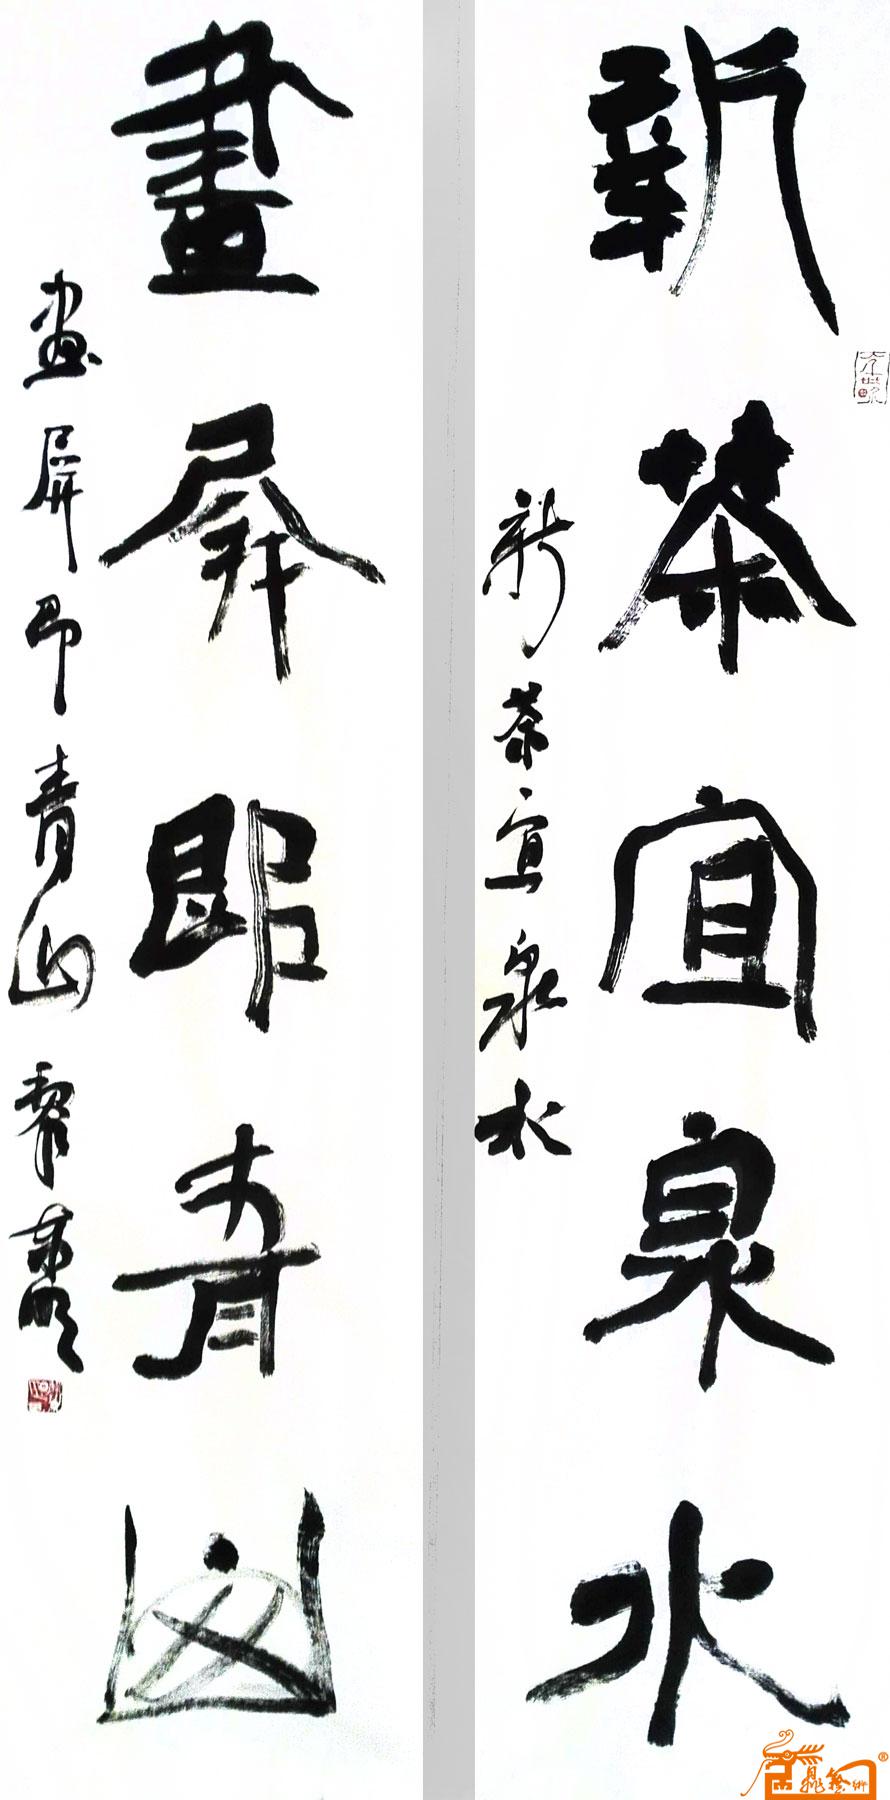 新茶宜泉水
新茶宜泉水
畫屏即青山
画屏即青山